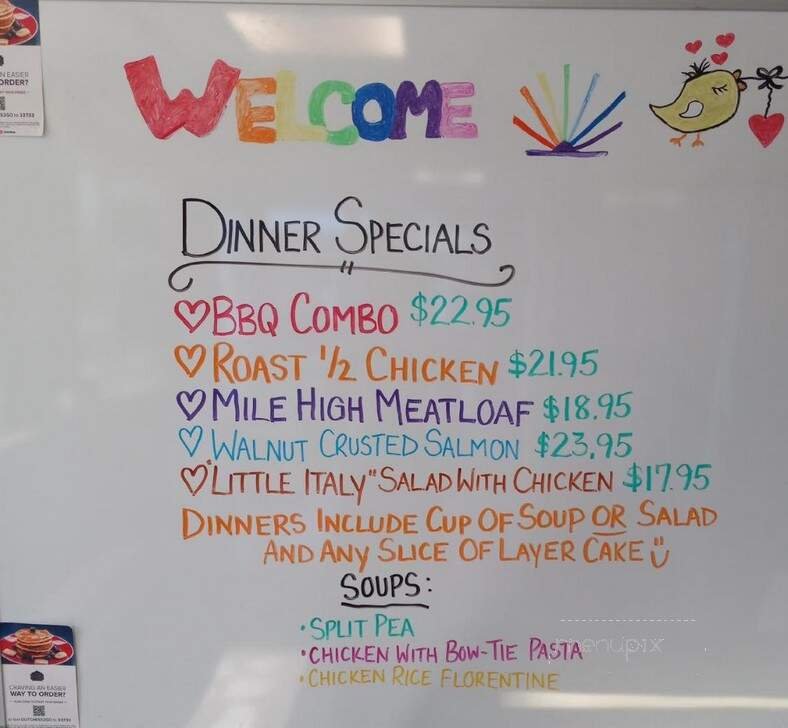 AN EASIER
ORDER?
WELCOME
DINNER SPECIALS
BBQ COMBO $22.95
ROAST 1/2 CHICKEN $21.95
MILE HIGH MEATLOAF $18.95
WALNUT CRUSTED SALMON $23.95
"LITTLE ITALY" SALAD WITH CHICKEN $17.95
DINNERS INCLUDE CUP OF SOUP OR SALAD
AND ANY SLICE OF LAYER CAKE
SOUPS:
• SPLIT PEA
• CHICKEN WITH BOW-TIE PASTA
• CHICKEN RICE FLORENTINE
menupix
CRAVING AN EASIER
WAY TO ORDER?